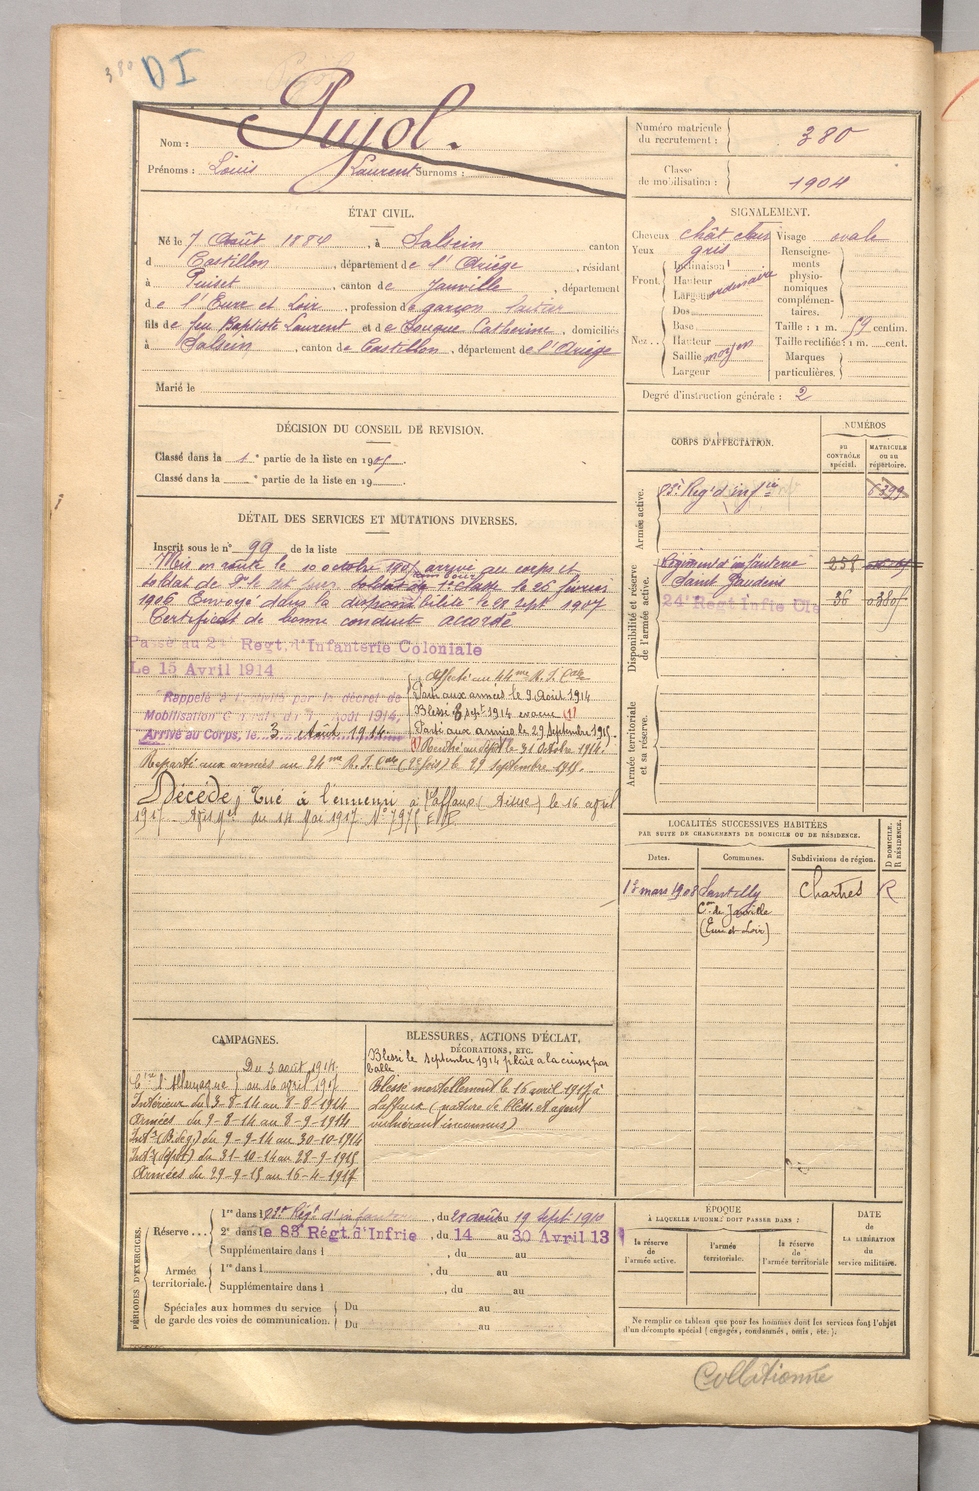 380
DI
Nom : Pujol.
Prénoms : Louis Laurent Surnoms :
Numéro matricule du recrutement : 380
Classe de mobilisation : 1904
ÉTAT CIVIL.
Né le 7 Août 1884, à Salsein canton
d Castillon, département de l'Ariège, résidant
à Puiset, canton de Janville, département
de l'Eure et Loir, profession de garçon laitier
fils de feu Baptiste Laurent et de Souque Catherine, domiciliés
à Salsein, canton de Castillon, département de l'Ariège
Marié le
SIGNALEMENT.
Cheveux chât clair Visage ovale
Yeux gris
Front. Inclinaison
Hauteur
Largeur ordinaire
Nez... Dos
Base
Hauteur
Saillie moyen
Largeur
Renseignements physionomiques complémentaires.
Taille : 1 m. 59 centim.
Taille rectifiée : 1 m. cent.
Marques particulières.
Degré d'instruction générale : 2
DÉCISION DU CONSEIL DE REVISION.
Classé dans la 1e partie de la liste en 1905.
Classé dans la e partie de la liste en 19
CORPS D'AFFECTATION.
NUMÉROS
au CONTRÔLE spécial.
MATRICULE ou au répertoire.
Armée active.
83e Reg' d'infie 6399
Disponibilité et réserve de l'armée active.
Régiment d'infanterie Saint Gaudens 258
24e Regt Infie Cle 36
Armée territoriale et sa réserve.
DÉTAIL DES SERVICES ET MUTATIONS DIVERSES.
Inscrit sous le n° 99 de la liste
Mis en route le 10 octobre 1905 arrivé au corps et
soldat de 2e cl. dit jour. soldat de 1e classe le 26 février
1906 Envoyé dans la disponibilité le 28 sept 1907
Certificat de bonne conduite accordé
Passé au 24 Regt. d'Infanterie Coloniale
Le 15 Avril 1914
Rappelé à l'activité par le décret de
Mobilisation Générale du 1 Août 1914,
Arrivé au Corps, le 3 Août 1914.
Affecté au 44me R.I.Cale
Parti aux armées le 9 Août 1914
Blessé 8 sept 1914 évacué (1)
Parti aux armées le 29 Septembre 1915.
(1) Rentré au dépôt le 31 Octobre 1914.
Reparti aux armées au 24me R.I.Cale (2e fois) le 29 septembre 1915.
Décédé, Tué à l'ennemi à Laffaux (Aisne) le 16 avril
1917 Avis Mel du 14 Mai 1917 N° 7975 E.R.
LOCALITÉS SUCCESSIVES HABITÉES
PAR SUITE DE CHANGEMENTS DE DOMICILE OU DE RÉSIDENCE.
Dates. Communes. Subdivisions de région. D DOMICILE. R RÉSIDENCE.
13 mars 1908 Santilly Con de Janville (Eure et Loir) Chartres R
CAMPAGNES.
Cgne d'Allemagne Du 3 août 1914
au 16 avril 1917
Intérieur du 3-8-14 au 8-8-1914
Armées du 9-8-14 au 8-9-1914
Intr (B. deg.) du 9-9-14 au 30-10-1914
Intr (dépôt) du 31-10-14 au 28-9-1915
Armées du 29-9-15 au 16-4-1917
BLESSURES, ACTIONS D'ÉCLAT,
DÉCORATIONS, ETC.
Blessé le septembre 1914 plaie à la cuisse par
balle
Blessé mortellement le 16 avril 1917 à
Laffaux (nature de bless. et agent
vulnérant inconnus)
PÉRIODES D'EXERCICES.
Réserve... 1re dans l 83e Regt d'infanterie, du 28 août au 19 Sept 1910
2e dans le 83 Régt. d'Infrie, du 14 au 30 Avril 13
Supplémentaire dans l , du au
Armée territoriale. 1re dans l , du au
Supplémentaire dans l , du au
Spéciales aux hommes du service de garde des voies de communication. Du au
Du au
ÉPOQUE
À LAQUELLE L'HOMME DOIT PASSER DANS :
la réserve de l'armée active.
l'armée territoriale.
la réserve de l'armée territoriale
DATE de LA LIBÉRATION du service militaire.
Ne remplir ce tableau que pour les hommes dont les services font l'objet
d'un décompte spécial (engagés, condamnés, omis, etc.).
Collationné